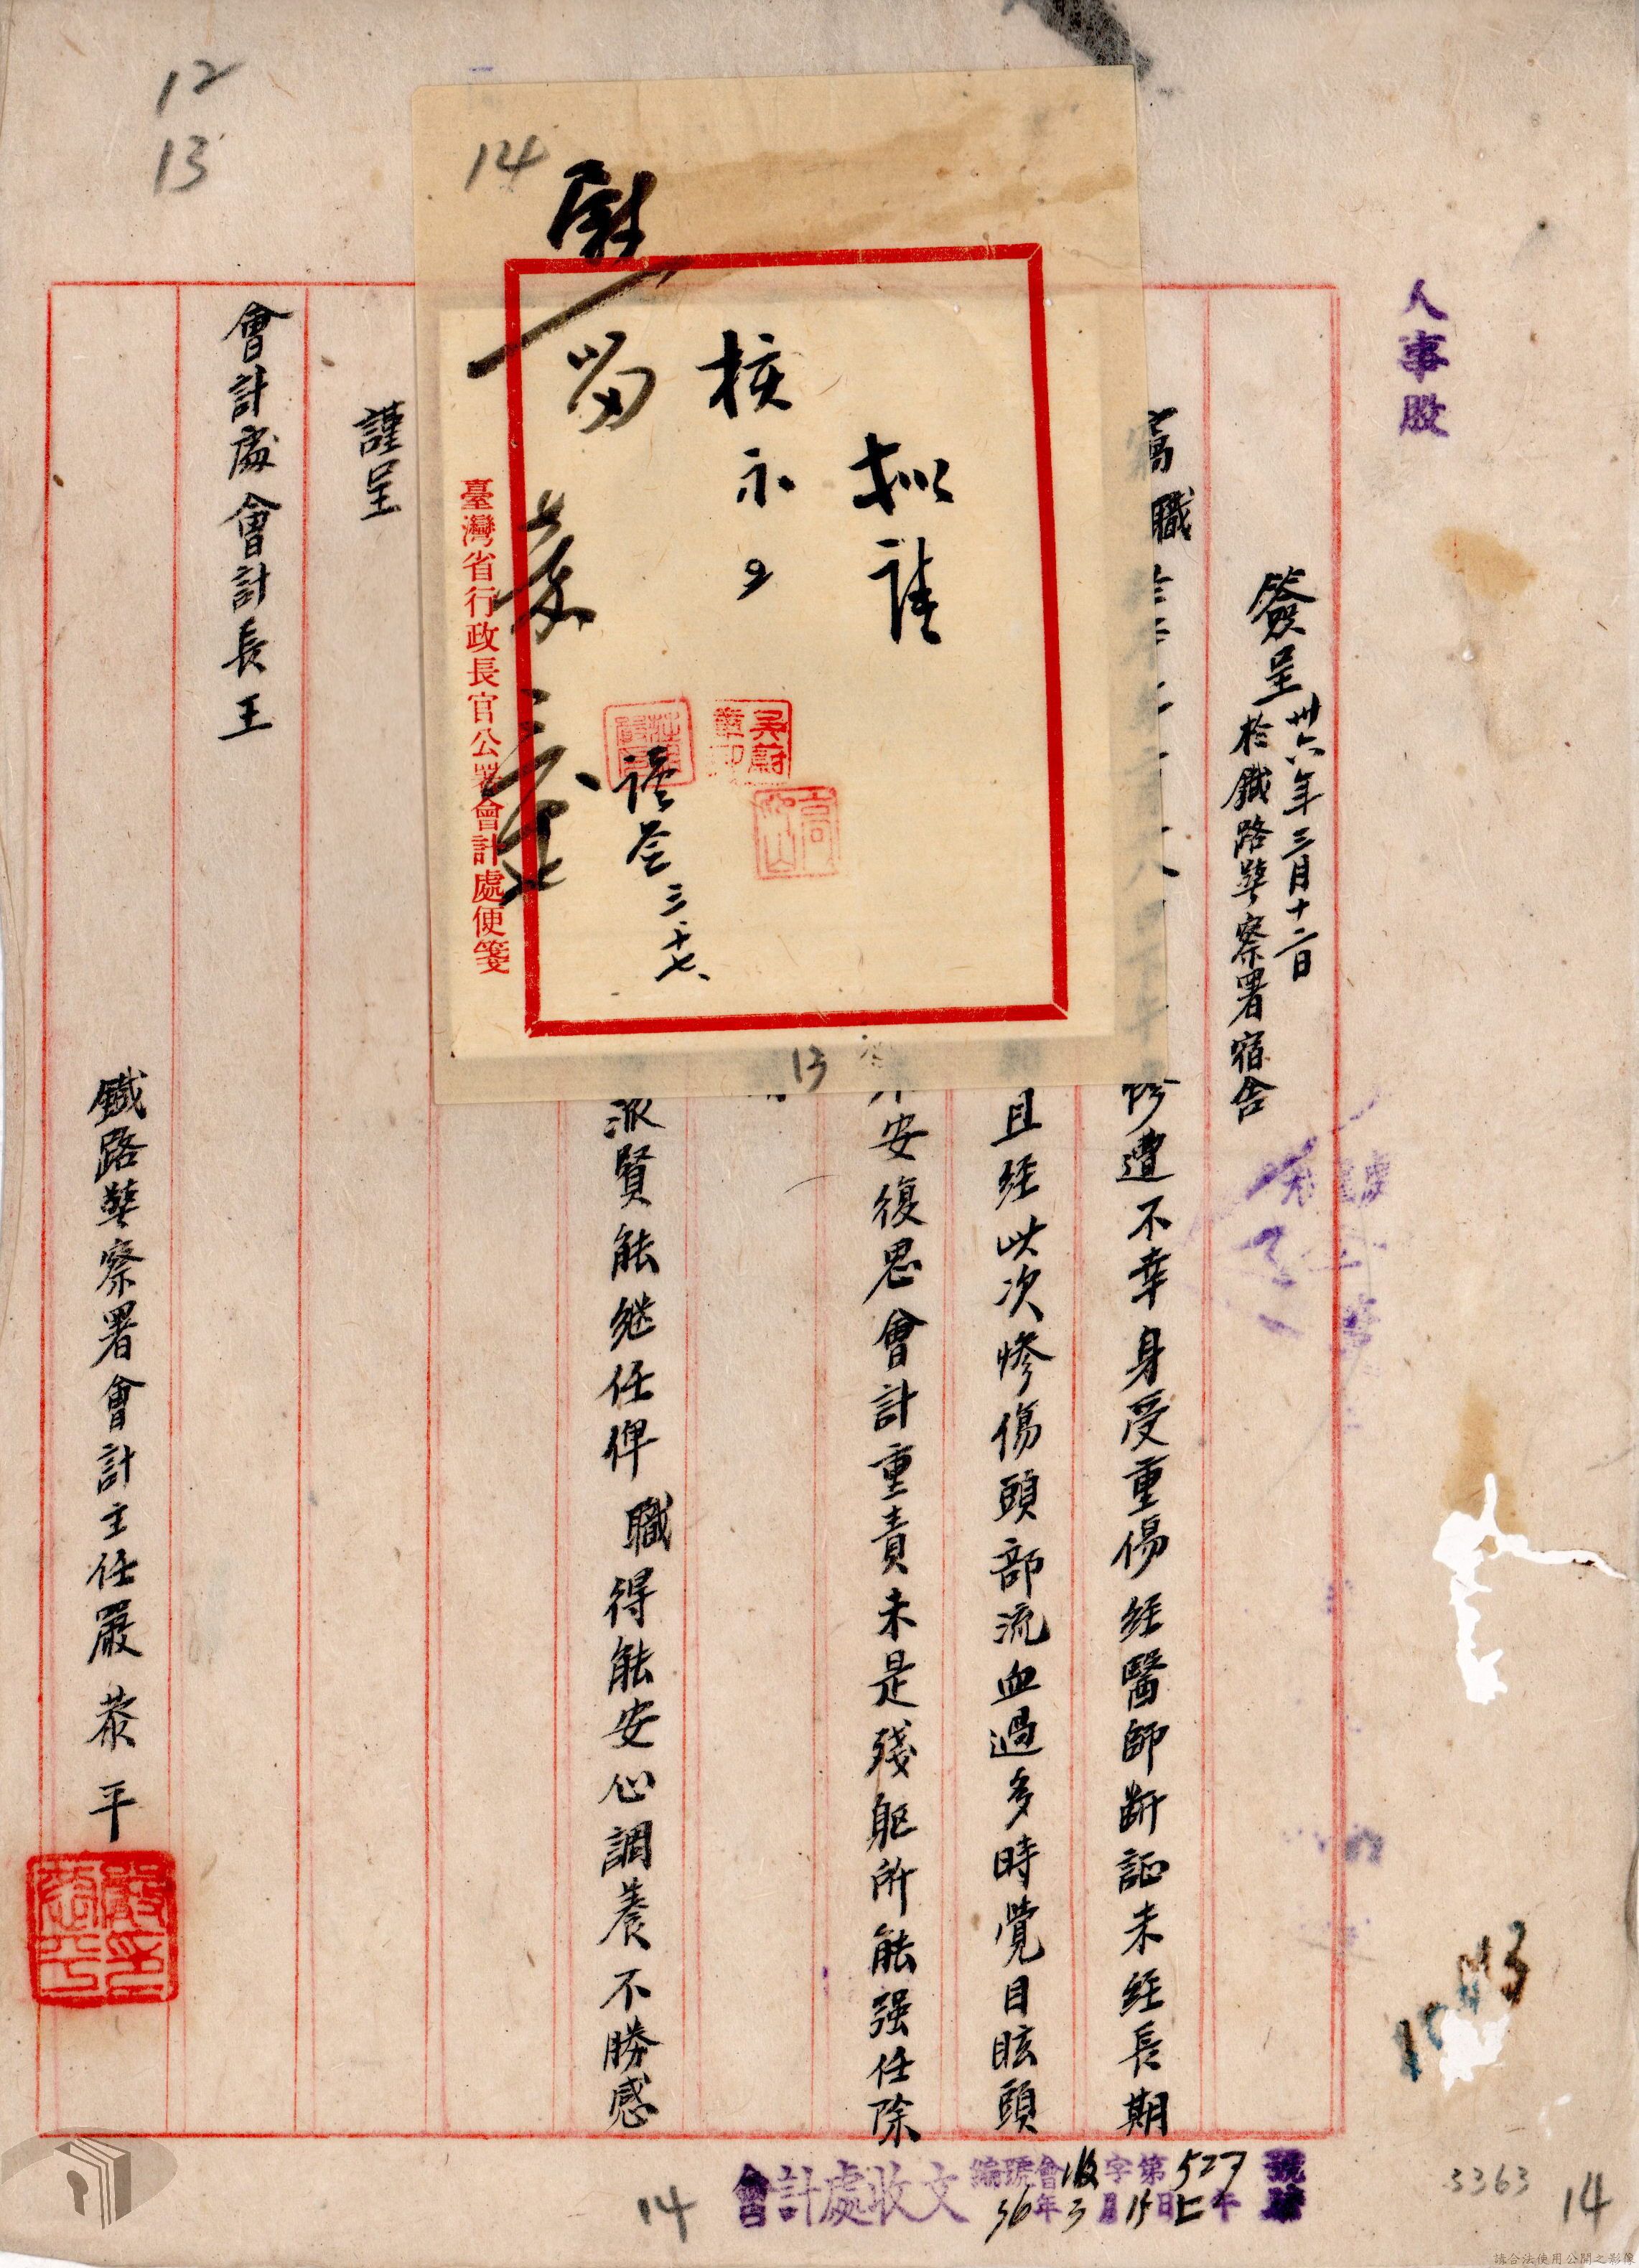 人事股
簽呈
卅六年三月十二日
於鐵路警察署宿舍
竊職
慘遭不幸身受重傷經醫師斷証未經長期
且經此次慘傷頭部流血過多時覺目眩頭
安復思會計重責未是殘軀所能强任除
派賢能繼任俾職得能安心調養不勝感
謹呈
會計處會計長王
鐵路警察署會計主任嚴恭平
擬請
核示
慰
留
三.十七、
臺灣省行政長官公署會計處便箋
12
13
14
13
會計處收文
編號會收字第527號
36年3月15日上午
14
3363
14
請合法使用公開之影像